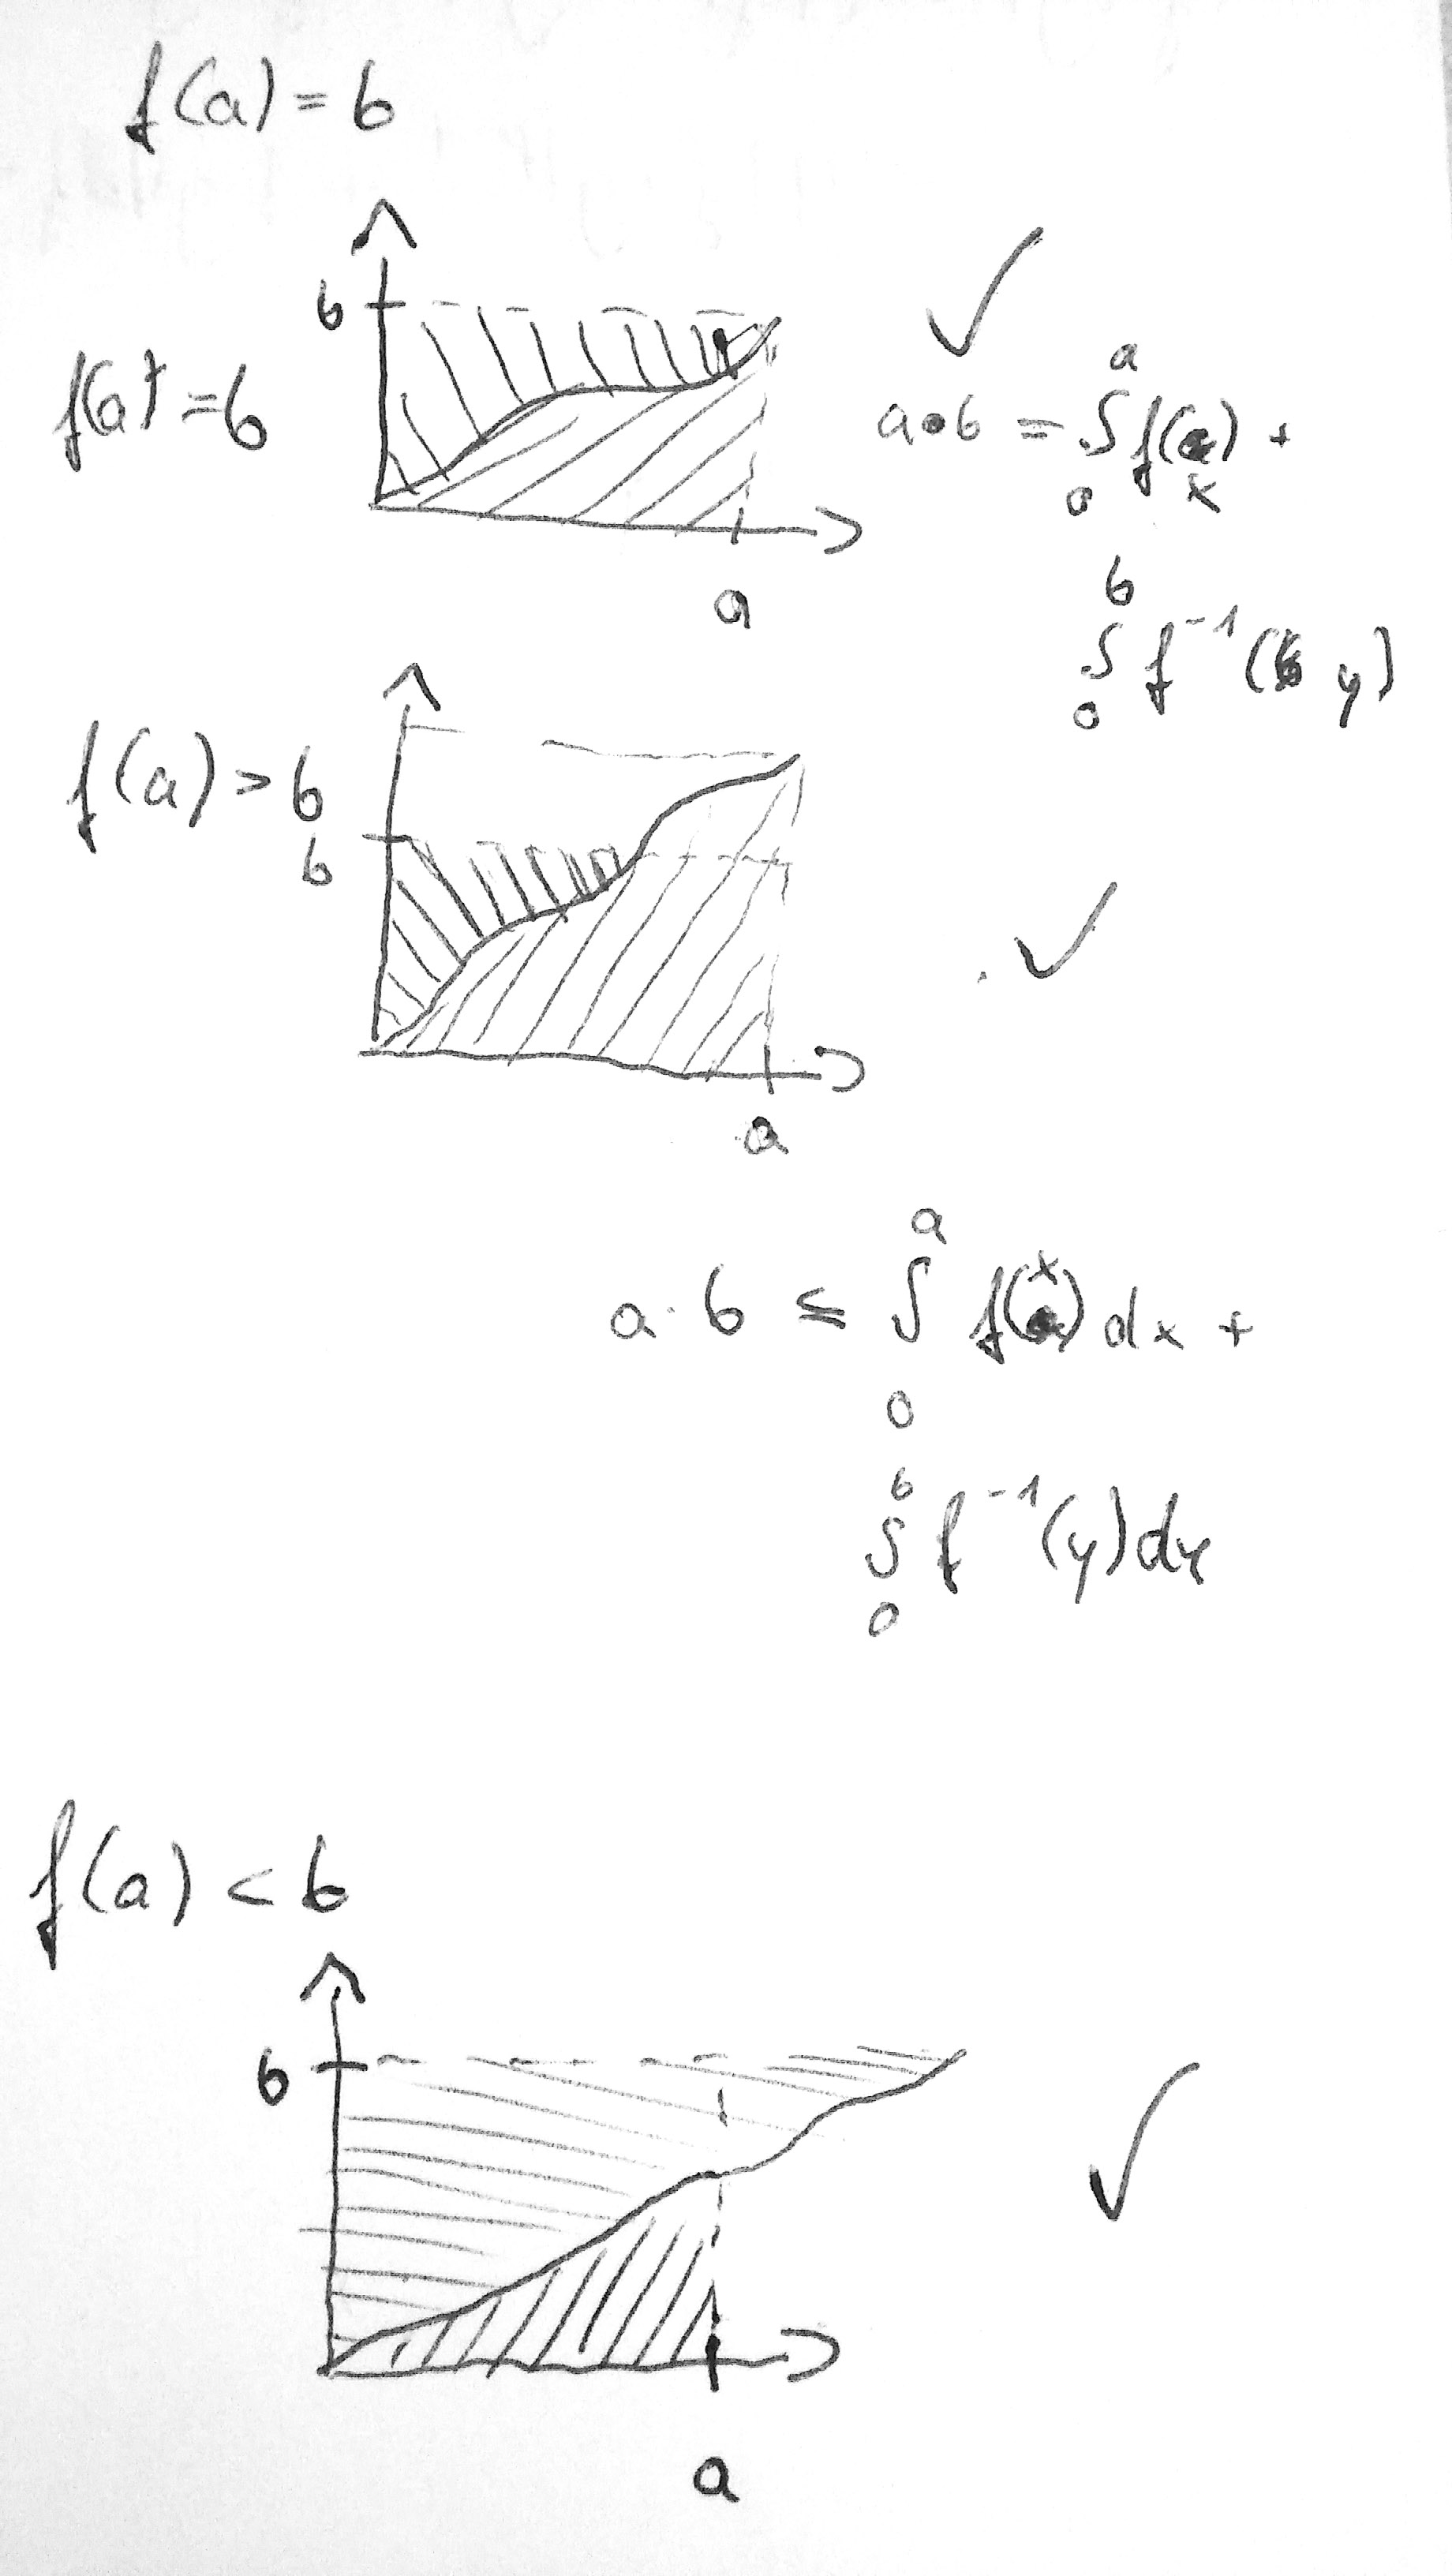 f(a) = b
b
f(a) = b
a•b = ∫₀ᵃ f(x) +
∫₀ᵇ f⁻¹(y)
a
f(a) > b
b
a
a·b ≤ ∫₀ᵃ f(x) dx +
∫₀ᵇ f⁻¹(y) dy
f(a) < b
b
a